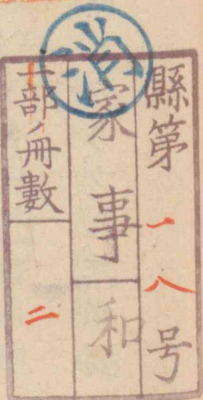 縣第一八号
家事 和
一部ノ冊數 二
消